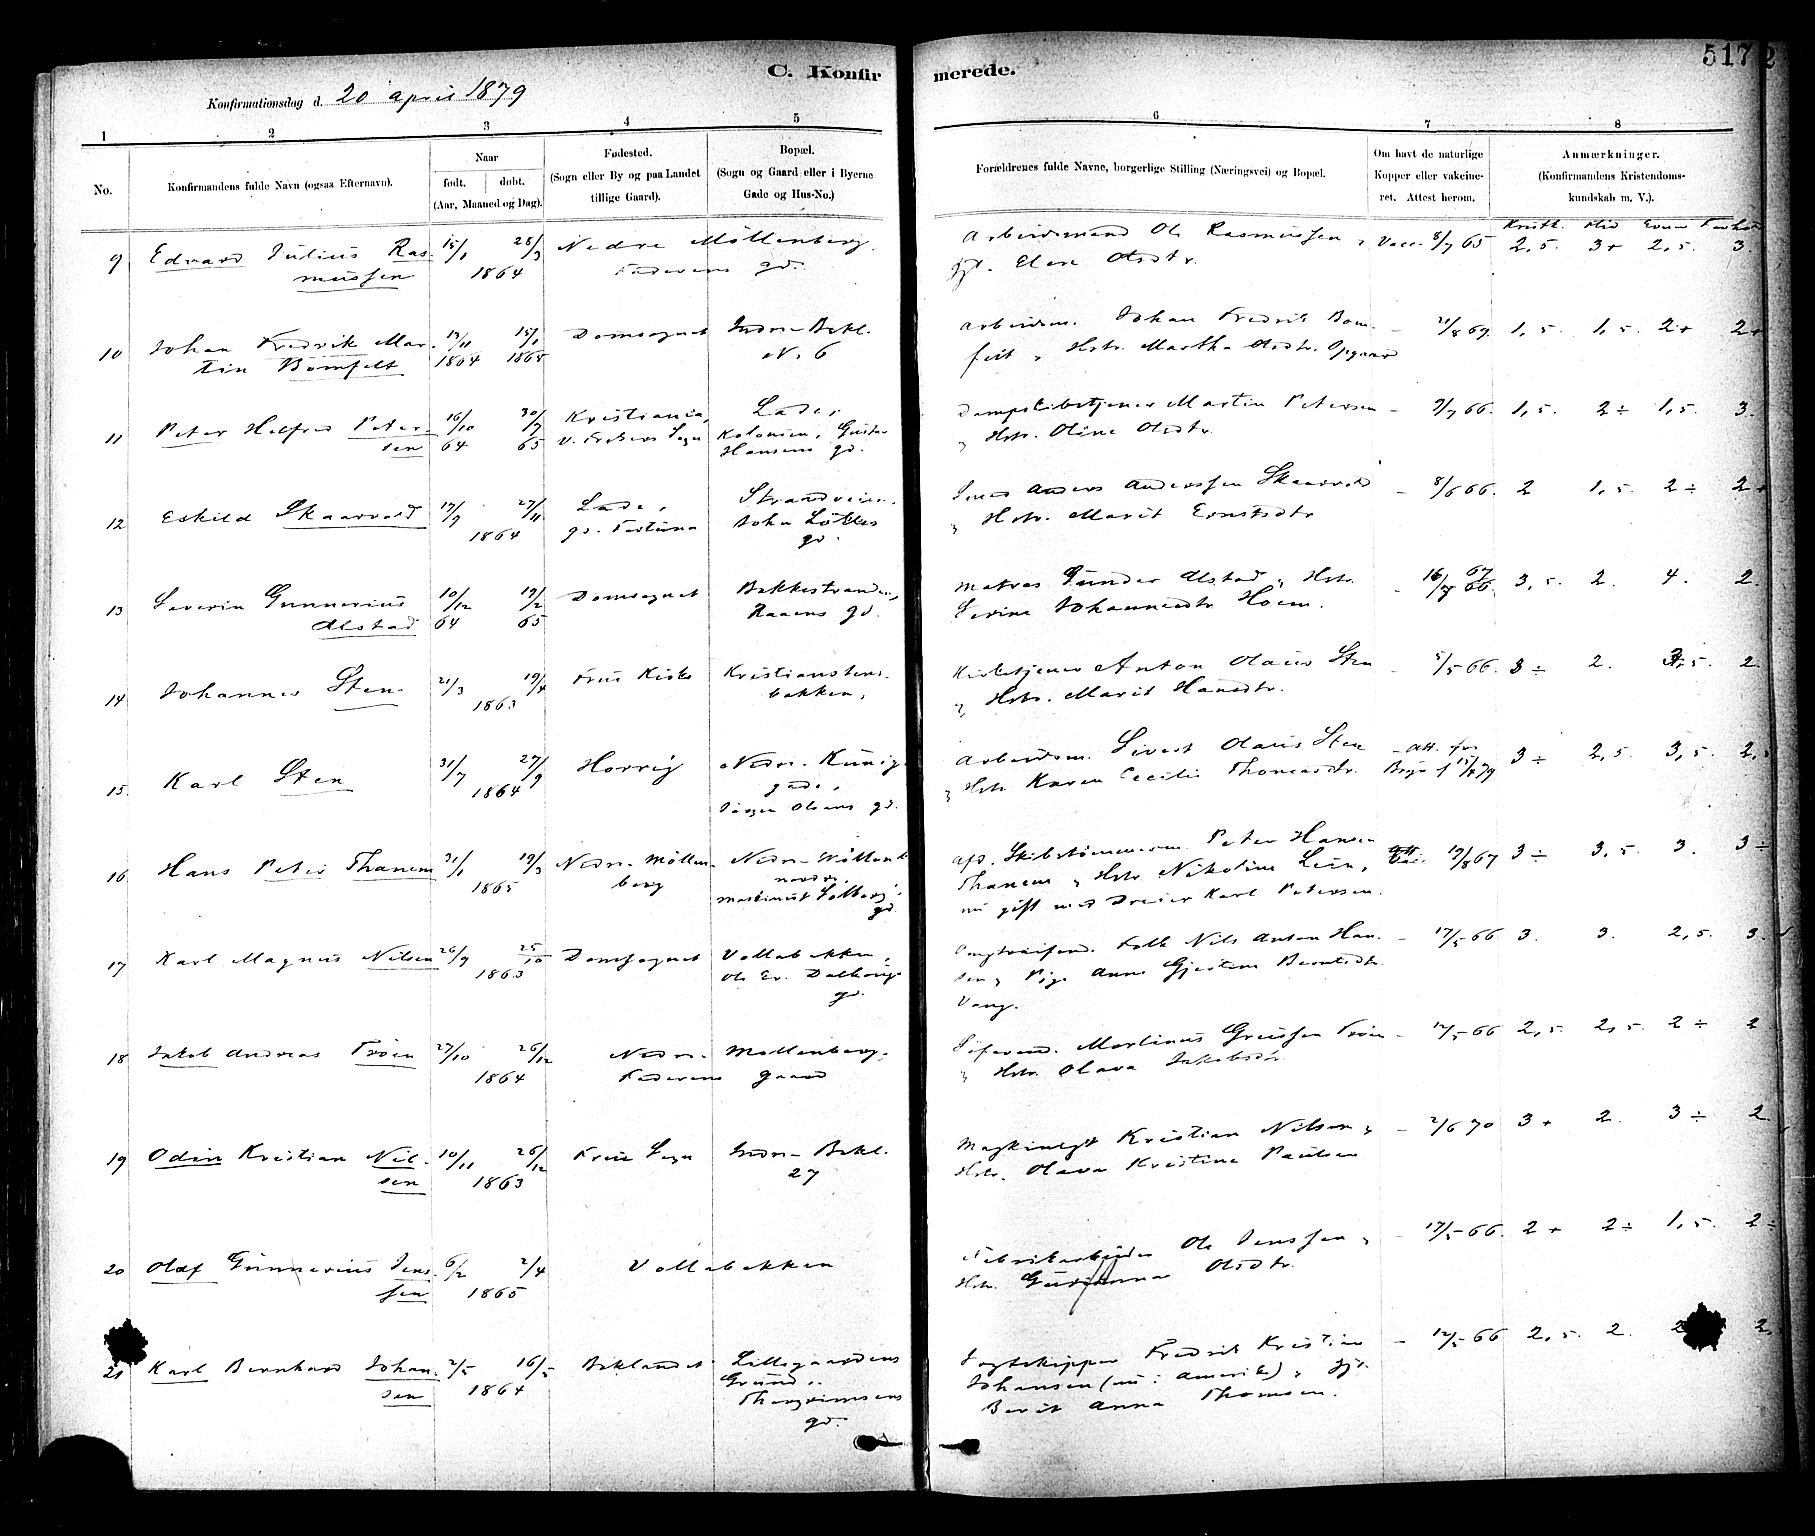 C. Konfirmerede.
517
Konfirmationsdag d. 20 april 1879
1 2 3 4 5 6 7 8
No.
Konfirmandens fulde Navn (ogsaa Efternavn).
Naar
født. døbt.
(Aar, Maaned og Dag).
Fødested.
(Sogn eller By og paa Landet
tillige Gaard).
Bopæl.
(Sogn og Gaard eller i Byerne
Gade og Hus-No.)
Forældrenes fulde Navne, borgerlige Stilling (Næringsvei) og Bopæl.
Om havt de naturlige
Kopper eller vakcine-
ret. Attest herom.
Anmærkninger.
(Konfirmandens Kristendoms-
kundskab m. V.).
9 Edvard Julius Ras-
mussen
15/1 28/3
1864
Nedre Møllenberg.
Faderens gd.
Arbeidsmand Ole Rasmussen
Elen Olsdtr.
Vacc. 8/7 65 2,5. 3+ 2,5. 3.
10 Johan Fredrik Mar-
tin Bomfelt
15/1
1864 1865
Domsognet
Indre-Bakl.
No 6
Arbeidsm. Johan Fredrik Bom-
Hstr. Martha Olsdtr. Opgaard
21/8 69. 1,5. 1,5. 2+ 2+
11 Peter Helfred Peter-
sen
16/10 30/7
64 65
Kristiania,
Lade,
Kolonien, Gustav
Hansens gd.
Martin Petersen
Hstr. Oline Olsdtr.
9/7 66. 1,5. 2÷ 1,5. 3.
12 Eskild Skaarvold
27/11
1864
Lade,
gd. Fortuna
Strandveien.
John Løkkes
gd.
Anders Anderssen Skaarvold
Hstr. Marit Ernstsdtr
8/6 66. 2 1,5. 2÷ 2+
13 Severin Gunnerius
Alstad
10/12 19/2
64 65
Domsognet
Bakkestranden,
Raaens gd.
Matros Gunder Alstad, Hstr.
Serine Johannesdtr Hoem.
3,5. 2. 4. 2.
14 Johannes Sten.
21/3 19/4
1863
Frue Kirke
Kristianstens-
bakken,
Kirketjener Anton Olaus Sten
Hstr. Marit Hansdtr.
5/5 66. 3÷ 2. 2
15. Karl Sten
31/7 27/9
1864
Horrig
Nedre-Kunig-
gade,
Jørgen Olsens gd.
Arbeidsm. Sivert Olaus Sten
Hstr Karen Cecilie Thomasdtr.
3÷ 2,5. 3,5.
16. Hans Peter Thanem
31/1 19/3
1865
Nedre-Møllen-
berg
Martinus Solberg
gd.
Peter Hansen
Thanem, Hstr Nikoline Lein,
nu gift med Dreier Karl Petersen.
19/8 67 3÷ 3,5. 3. 3÷
17 Karl Magnus Nilsen
26/9 25/10
1863
Domsognet
Vollabakken,
gd.
Nils Anton Han-
sen, Pige Anne Gjertine Berntsdtr.
Vang.
17/5 66 3. 3. 2,5. 3.
18 Jakob Andreas Trøen
27/10 26/12
1864
Nedre-Møllenberg,
Faderens gaard
Martinus Greussen Trøen
Hstr. Olava Jakobsdtr.
17/5 66 2,5. 2,5. 2÷ 2
19 Odin Kristian Nil-
sen
10/11 26/12
1863
Frue Sogn
Indre-Bakl.
27
Kristian Nilsen,
Hstr. Olava Kristine Paulsen
2/6 70 3+ 2. 3÷ 2
20 Olaf Gunnerius Jens-
sen
6/2 2/4
1865
Vollabakken
Fabrikarbeider Ole Jenssen,
Hstr. Gurianna Olsdtr.
17/5 66. 2+ 2÷ 1,5. 2÷
21 Karl Bernhard Johan-
sen
2/5 16/5
1864
Baklandet
Lillegaardens
Grund,
Thorgrimsens
gd.
Jagteskipper Fredrik Kristian
Johansen (nu i Amerika),
Berit Anna Thomsen.
12/5 66 2,5. 2. 2.